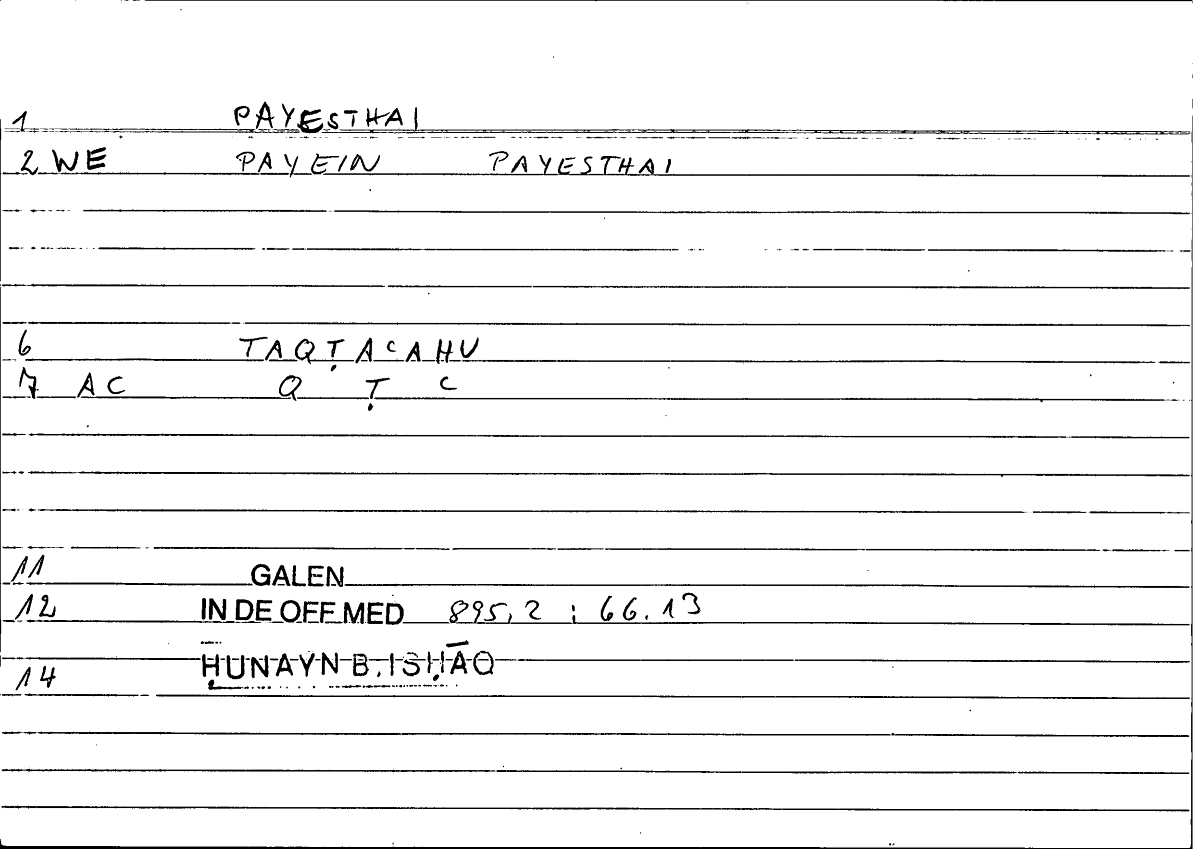 1 PAYESTHAI
2 WE PAYEIN PAYESTHAI
6 TAQṬAʿAHU
7 AC Q Ṭ ʿ
11 GALEN
12 IN DE OFF MED 895,2 ; 66.13
14 ḤUNAYN B. ISḤĀQ